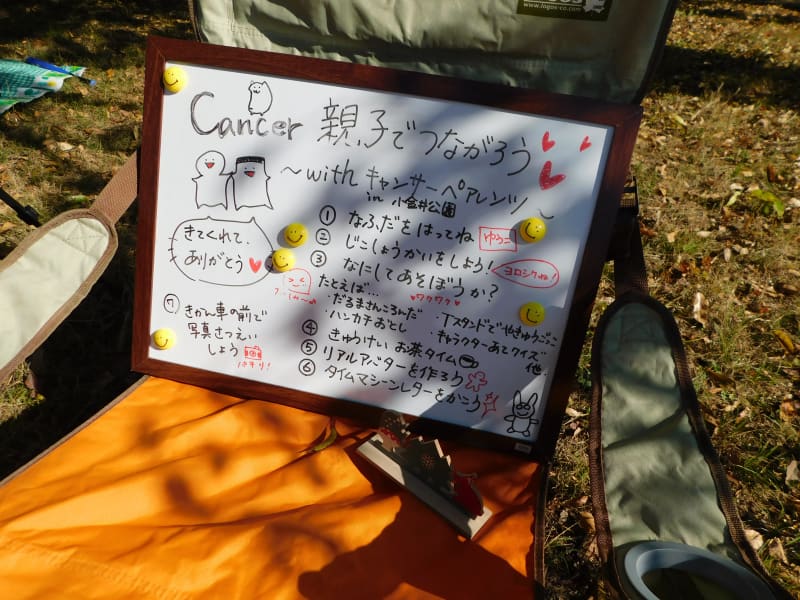 www.logos-co.com
Cancer 親子でつながろう
～with キャンサーペアレンツ～
in 小金井公園
きてくれて、
ありがとう
① なふだをはってね ゆうこ
② じこしょうかいをしよう！ ヨロシクね！
③ なにしてあそぼうか？
たとえば… ワクワク
・だるまさんころんだ
・ハンカチおとし
・Tスタンドでやきゅうごっこ
キャラクターあとクイズ
他
④ きゅうけい お茶タイム
⑤ リアルアバターを作ろう
⑥ タイムマシーンレターをかこう
⑦ きかん車の前で
写真さつえい
しよう
パチリ！